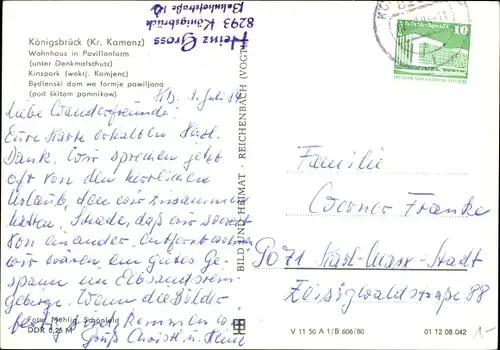 Königsbrück (Kr. Kamenz)
Wohnhaus in Pavillonform
(unter Denkmalschutz)
Kinspork (wokrj. Kamjenc)
Bydlenski dom we formje pawiljona
(pod škitom pomnikow)
Heinz Gross
8293 Königsbrück
Bahnhofstraße
10
Kb. 1. Juli 84
Liebe Wanderfreunde!
Eure Karte erhalten Herzl.
Dank. Wir sprechen jetzt
oft von den herrlichen
Urlaub, den wir zusammen
hatten. Schade, daß wir soweit
von einander entfernt
wir wären ein gutes Ge-
spann im Elbsandstein-
gebirge. Wenn die Bilder
fertig sind kommen
Gruß Christl u. Heinz
Foto: Mehlig, Schönfeld
DDR 0,25 M
BILD UND HEIMAT · REICHENBACH (VOGTL)
Familie
Werner Franke
9071 Karl-Marx-Stadt
Zeisigwaldstraße 88
V 11 50 A 1/B 606/80
01 12 08 042